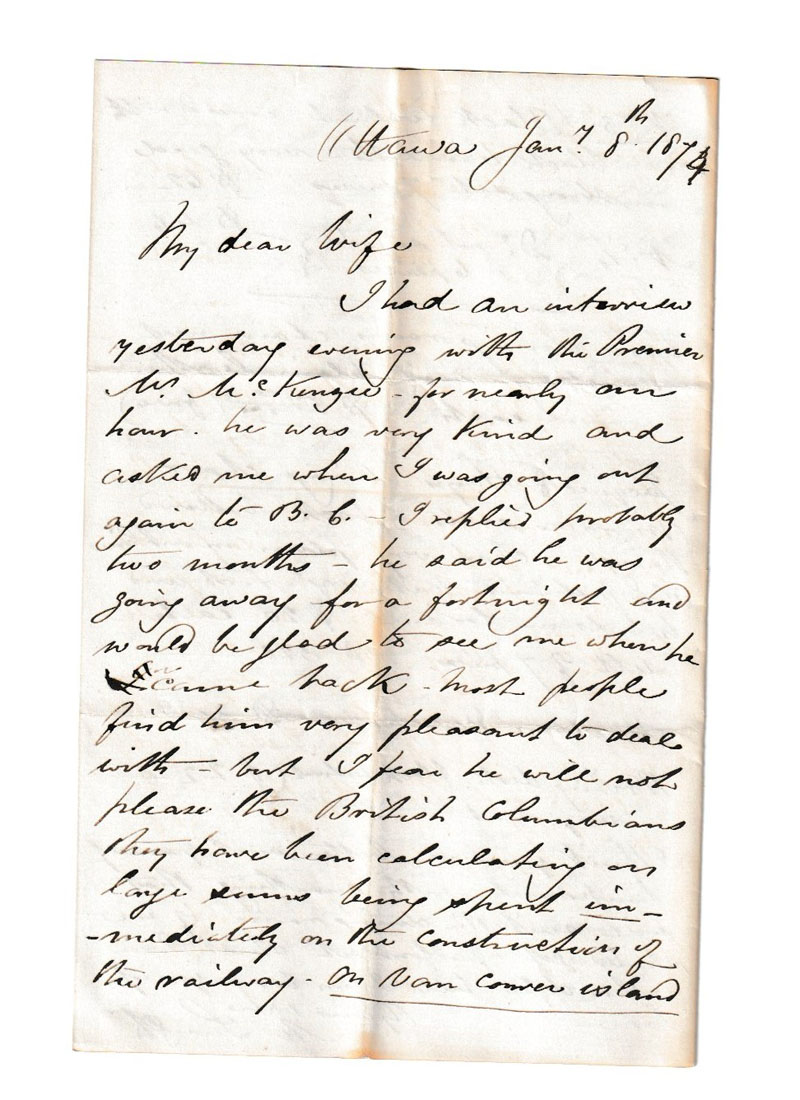 Ottawa Jany. 8th. 1874
My dear Wife
I had an interview
yesterday evening with the Premier
Mr. McKenzie - for nearly an
hour. he was very kind and
asked me when I was going out
again to B. C. - I replied probably
two months - he said he was
going away for a fortnight and
would be glad to see me when he
came back - most people
find him very pleasant to deal
with - but I fear he will not
please the British Columbians
they have been calculating on
large sums being spent im-
-mediately on the construction of
the railway - on Van couver island